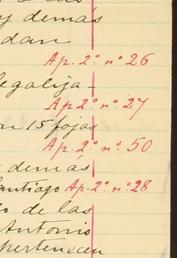 y demás
dan
Ap. 2.º n.º 26
legaliza-
Ap 2.º n.º 27
n 15 fojas
Ap. 2.º n.º 50
demás
Santiago Ap. 2.º n.º 28
o de las
Antonio
pertenecen